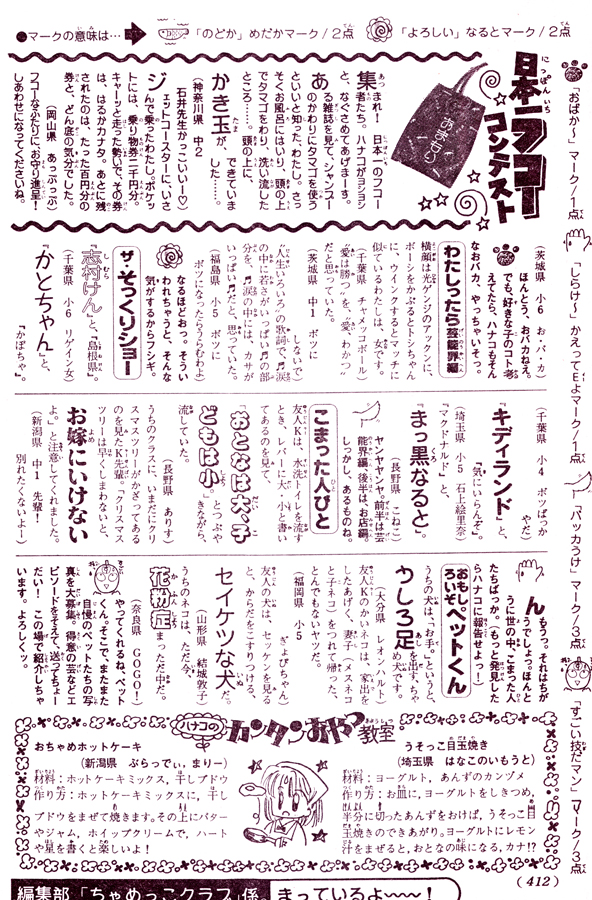 ●マークの意味は…
「のどか」めだかマーク/2点
「よろしい」なるとマーク/2点
「おばか〜」マーク/1点
「しらけ〜」かえってEよマーク/1点
「バッカうけ」マーク/3点
「すごい技だマン」マーク/3点
日本一フコー
コンテスト
おまもり
集まれ! 日本一のフコー
者たち。ハナコがヨシヨシ
と、なぐさめてあげまーす。
ある雑誌を見て、シャンプー
のかわりにタマゴを使う
といいと知ったわたし。さっ
そくお風呂にはいり、頭の上
でタマゴをわり、洗い流した
ところ……。頭の上に、
かき玉が、できていま
した……。
(神奈川県 中2
石井先生かっこいいー♡)
ジェットコースターに、いさ
んで乗ったわたし。ポケッ
トには、乗り物券二千円分。
キャーッと走った勢いで、その券
は、はるかカナタ。あとに残
されたのは、たった百円分の
券と、どん底の気分でした。
(岡山県 あっぷっぷ)
フコーなふたりに、お守り進呈!
しあわせになってくださいね。
(茨城県 小6 お・バ・カ)
ほんとう、おバカねえ。
でも、好きな子のコト考
えてたら、ハナコもそん
なおバカ、やっちゃいそっ。
わたしったら芸能界編
横顔は光ゲンジのアックンに、
ポーシをかぶるとトシちゃん
に、ウインクするとマッチに
似ているわたしは、女です。
(千葉県 チャメッコポール)
“愛は勝つ”を、“愛、わかつ”
だと思っていた。
(茨城県 中1 ボツに
しないで)
“人生いろいろ”の歌詞で、♬涙
の中に若さがいっぱい♬の部
分を、♬涙の中には、カサが
いっぱい♬だと、思っていた。
(福島県 小5 ボツに
ボツになったらうらむわよ)
なるほどおっ。そうい
われちゃうと、そんな
気がするからフシギ。
ザ・そっくりショー
『志村けん』と、『島根県』。
(千葉県 小6 リゲイン女)
『かとちゃん』と、
『かぼちゃ』。
(千葉県 小4 ボツばっか
やだ)
『キディランド』と、
『気にいらんぞ』。
(埼玉県 小5 石上絵里奈)
『マクドナルド』と、
『まっ黒なると』。
(長野県 こねこ)
ヤンヤヤンヤ。前半は芸
能界編、後半はお店編。
しっかし、あるものね。
こまった人びと
友人Kは、水洗トイレを流す
とき、レバーに大、小と書い
てあるのを見て、
『おとなは大、子
どもは小』。とつぶや
きながら、
流していた。
(長野県 ありす)
うちのクラスに、いまだにクリ
スマスツリーがかざってある
のを見たK先輩。「クリスマス
ツリーは早くしまわないと、
お嫁にいけない
よ。」と注意してくれました。
(新潟県 中1 先輩!
別れたくないよー)
んもうっ。それはちが
うでしょっ。ほんと
うに世の中、こまった人
たちばっか。もっと発見した
らハナコに報告せよっ!
おもしろいぞペットくん
うちの犬は、「お手。」というと、
うしろ足を出す、ちゃ
めな犬です。
(大分県 レオンハルト)
友人Kのかいネコは、家出を
したあげく、妻子(メスネコ
と子ネコ)をつれて帰った、
とんでもないヤツだ。
(福岡県 小5
ぎょぴちゃん)
友人の犬は、セッケンを見る
と、からだをこすりつける、
セイケツな犬だ。
(山形県 結城敦子)
うちのネコは、ただ今、
花粉症まっただ中だ。
(奈良県 GOGO!)
やってくれるね、ペット
くん。そこで、またまた
自慢のペットたちの写
真を大募集。得意の芸などエ
ピソードをそえて送ってちょー
だい! この場で紹介しちゃ
います。よろしくッ。
ハナコの
カンタンおやつ教室
おちゃめホットケーキ
(新潟県 ぶらっでぃ,まりー)
材料:ホットケーキミックス,干しブドウ
作り方:ホットケーキミックスに,干し
ブドウをまぜて焼きます。その上にバター
やジャム,ホイップクリームで,ハート
や星を書くと楽しいよ!
うそっこ目玉焼き
(埼玉県 はなこのいもうと)
材料:ヨーグルト,あんずのカンヅメ
作り方:お皿に,ヨーグルトをしきつめ,
半分に切ったあんずをおけば,うそっこ目
玉焼きのできあがり。ヨーグルトにレモン
汁をまぜると,おとなの味になる,カナ!?
(412)
編集部「ちゃめっこクラブ」係
まっているよ〜〜!